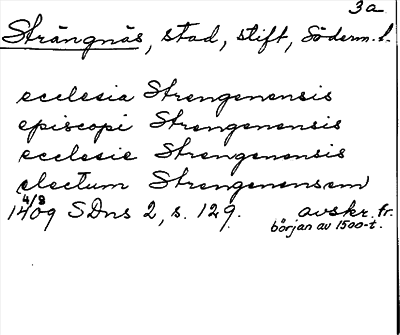 3a
Strängnäs, stad, stift, Söderm. l.
ecclesia Strengenensis
episcopi Strengenensis
ecclesie Strengenensis
electum Strengenensem
4/8
1409 SDns 2, s. 129. avskr. fr.
början av 1500-t.